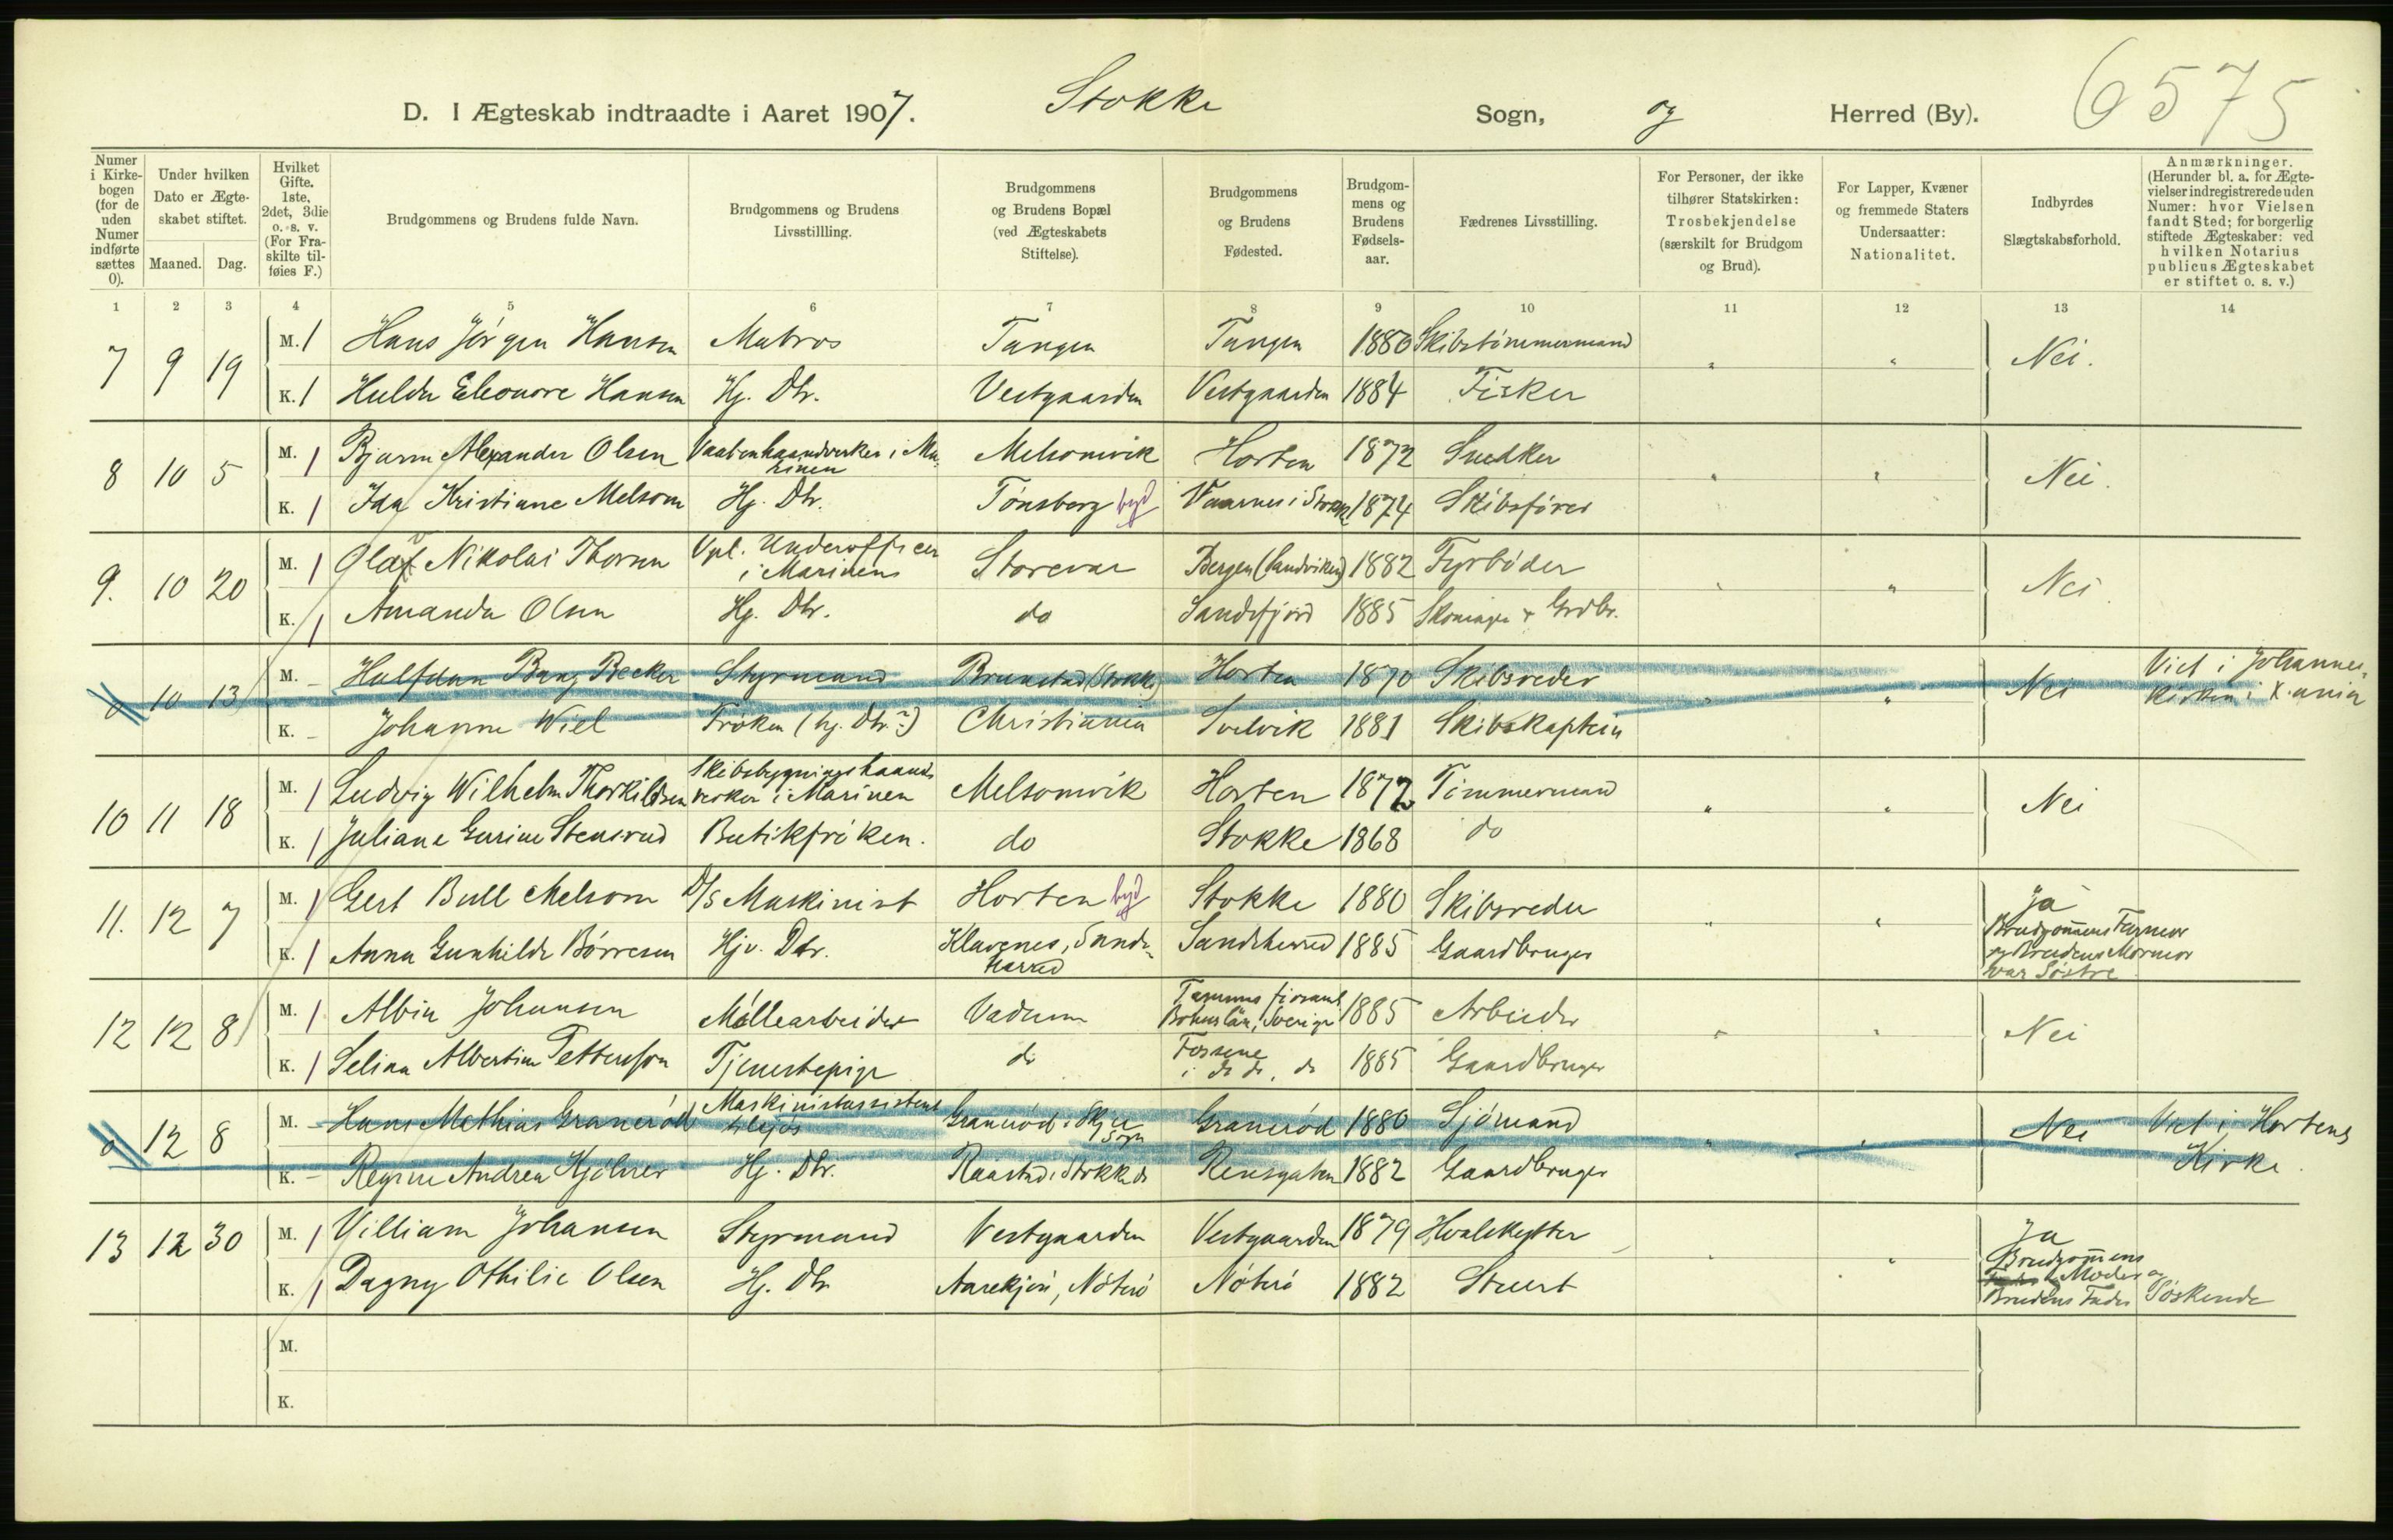 6575
D. I Ægteskab indtraadte i Aaret 1907. Stokke Sogn, og Herred (By).
Numer i Kirke-bogen (for de uden Numer indførte sættes 0).
Under hvilken Dato er Ægte-skabet stiftet.
Maaned. Dag.
Hvilket Gifte. 1ste, 2det, 3die o. s. v. (For Fra-skilte til-føies F.)
Brudgommens og Brudens fulde Navn.
Brudgommens og Brudens Livsstillling.
Brudgommens og Brudens Bopæl (ved Ægteskabets Stiftelse).
Brudgommens og Brudens Fødested.
Brudgom-mens og Brudens Fødsels-aar.
Fædrenes Livsstilling.
For Personer, der ikke tilhører Statskirken: Trosbekjendelse (særskilt for Brudgom og Brud).
For Lapper, Kvæner og fremmede Staters Undersaatter: Nationalitet.
Indbyrdes Slægtskabsforhold.
Anmærkninger. (Herunder bl. a. for Ægte-vielser indregistrerede uden Numer: hvor Vielsen fandt Sted; for borgerlig stiftede Ægteskaber: ved hvilken Notarius publicus Ægteskabet er stiftet o. s. v.)
1 2 3 4 5 6 7 8 9 10 11 12 13 14
7 9 19 M. 1 Hans Jörgen Hansen Matros Tangen Tangen 1880 Skibstömmermand " " Nei.
K. 1 Hulda Eleonore Hansen Hj. Dtr. Vestgaarden Vestgaarden 1884 Fisker
8 10 5 M. 1 Bjarne Alexander Olsen Vaabenhaandverker i Ma-rinen Melsomvik Horten 1872 Snedker " " Nei.
K. 1 Ida Kristiane Melsom Hj. Dtr. Tönsberg byd Vaarnes i Stokke 1874 Skibsförer
9. 10 20 M. 1 Olaf Nikolai Thorsen Vpl. Underofficer i Marinens Storevar Bergen (Sandviken) 1882 Fyrböder " " Nei.
K. 1 Amanda Olsen Hj. Dtr. do Sandefjord 1885 Skomager & Grdbr.
0 10 13 M. - Halfdan Bang Becker Styrmand Brunstad (Stokke) Horten 1870 Skibsreder " " Nei Viet i Johannes-kirken i X.ania
K. - Johanne Wiel Fröken (hj. Dtr?) Christiania Svelvik 1881 Skibskaptein
10 11 18 M. 1 Ludvig Wilhelm Thorkildsen Skibsbygningshaand-verker i Marinen Melsomvik Horten 1872 Tömmermand " " Nei
K. 1 Juliane Gurine Stensrud Butikfröken. do Stokke 1868 do
11. 12 7 M. 1 Gert Bull Melsom D/s Maskinist Horten byd Stokke 1880 Skibsreder " " Ja
K. 1 Anna Gunhilde Börresen Hjv. Dtr. Klavenes, Sande-herred Sandeherred 1885 Gaardbruger Brudgommens Farmor og Brudens Mormor var Söstre
12 12 8 M. 1 Albin Johansen Möllearbeider Vadum Bohuslän, Sverige 1885 Arbeider " " Nei
K. 1 Selina Albertine Petterson Tjenestepige do Fossene i do do, do 1885 Gaardbruger
0 12 8 M. - Hans Mathias Graneröd Maskinistassistent Graneröd i Skjee Sogn Graneröd 1880 Sjömand " " Nei Viet i Hortens Kirke.
K. - Regine Andrea Hj. Dtr. Raastad i Stokke do 1882 Gaardbruger
13 12 30 M. 1 Villiam Johansen Styrmand Vestgaarden Vestgaarden 1879 Hvalskytter " " Ja
K. 1 Dagny Othilie Olsen Hj. Dtr Nöterö Nöterö 1882 Stuert Brudgommens Moder og Brudens Fader Söskende
M.
K.